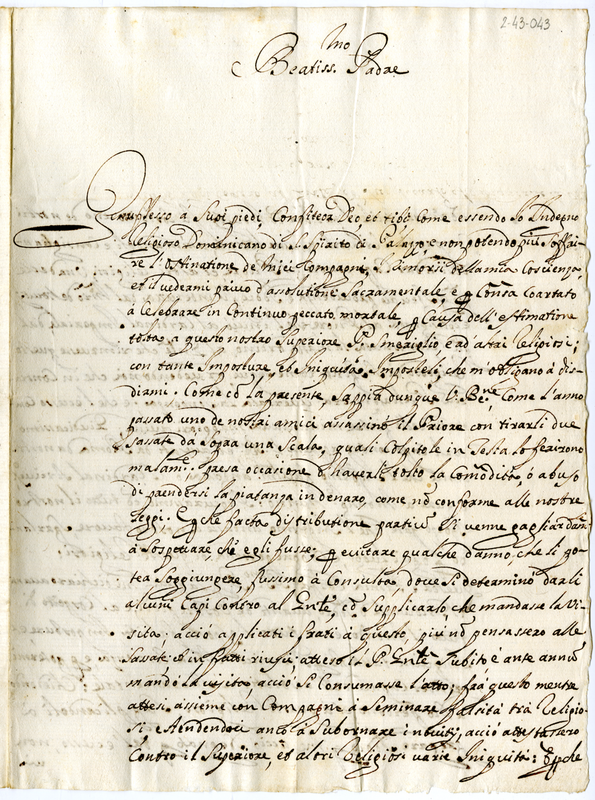 2-43-043
Beatiss.mo Padre
Genuflesso à Suoi piedi, Confiteor Deo, et tibi come essendo Io Indegno
Religioso Domenicano di S. Spirito di e non potendo più Soffri-
re l'Ostinatione de Miei Compagni, I rimorsi della mia Coscienza,
et il vedermi privo d'assolutione Sacramentale, e p Conseg.a Coartato
à Celebrare in Continuo peccato mortale, p Causa dell'estimatione
tolta a questo nostro Superiore P. Smeriglio e ad altri Religiosi;
con tante Imposture, et Iniquità Imposteli, che m'obligano à dis-
dirmi. Come cō la presente, Sappia dunque V. Be.ne Come l'anno
passato uno de nostri amici assassinò il Priore con tirarli due
sassate da Sopra una Scala, quali Colpitole in Testa lo ferirono
malam.e; presa occasione d'haverli tolto la Comodità, ò abuso
di prendersi la piatanza in denaro, come nō conforme alle nostre
leggi; E p che facta distributione partiū Si venne
à Sospettare, che egli fusse; p evitare qualche danno, che li po-
tea Soggiungere, fussimo à Consulta, dove Si determinò darli
alcuni Capi Contro al cō Supplicarlo, che mandasse la Vi-
sita, acciò applicati i frati à questo, più nō pensassero alle
Sassate. Et in fatti riuscì atteso il P. Subito è ante annū
mandò la visita, acciò Si Consumasse l'atto; frà questo mentre
attesi assieme con Compagni à Seminare falsità trà Religio-
si, e Attendendoci anco à Subornare acciò attestassero
Contro il Superiore, et altri Religiosi varie Iniquità: E p che